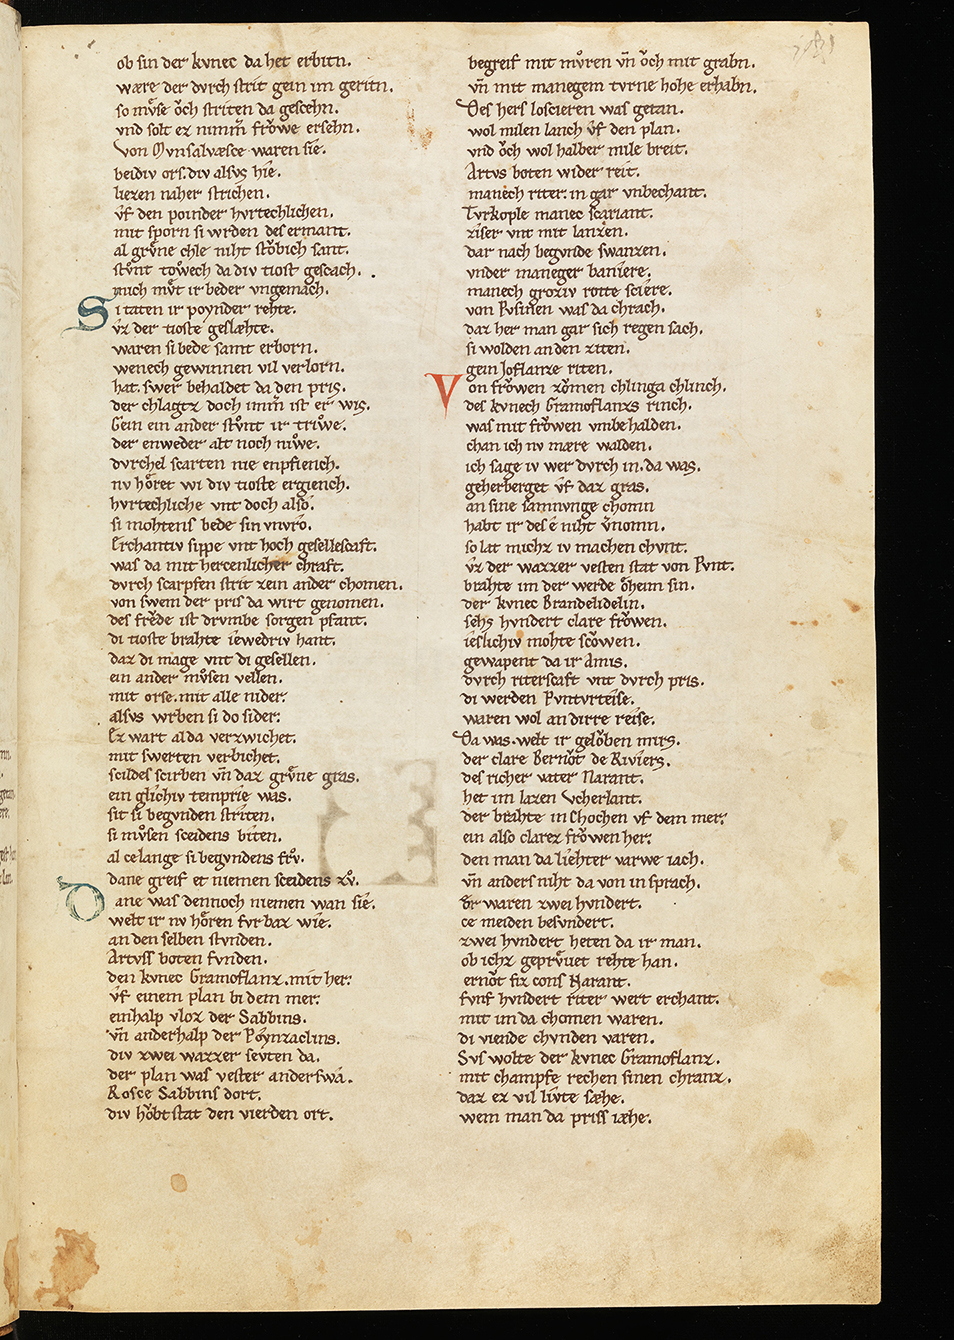 ob sin der kvnec da het erbitn.
wære der dvrch strit gein im geritn.
so mvͤse oͮch striten da gescehn.
vnd solt ez nimm̄ froͮwe ersehn.
Von Mvnsalvæsce waren sie.
beidiv ors. div alsvs hie.
liezen naher strichen.
vf̄ den poinder hvrtechlichen.
mit sporn si wrden des ermant.
al grvͤne chle niht stoͮbich sant.
stvͦnt toͮwech da div tiost gescach.
mich mvͤt ir beder vngemach.
Si taten ir poynder rehte.
vz̄ der tioste geslæhte.
waren si bede samt erborn.
wenech gewinnen vil verlorn.
hat. swer behaldet da den pris.
der chlagtz doch imm̄ ist er wis.
Gein ein ander stvͦnt ir triwͦe.
der enweder alt noch niwͦe.
dvrchel scarten nie enpfiench.
nv hoͤret wi div tioste ergiench.
hvrtechliche vnt doch also.
si mohtens bede sin vnvro.
Erchantiv sippe vnt hoch gesellescaft.
was da mit hercenlicher chraft.
dvrch scarpfen strit zein ander chomen.
von swem der pris da wirt genomen.
des frevͤde ist drvmbe sorgen pfant.
di tioste brahte iewedriv hant.
daz di mage vnt di gesellen.
ein ander mvͤsen vellen.
mit orse. mit alle nider.
alsvs wrben si do sider.
Ez wart alda verzwichet.
mit swerten verbichet.
scildes scirben vn̄ daz grvͤne gras.
ein glichiv temprie was.
sit si begvnden striten.
si mvͤsen sceidens biten.
al celange si begvndens frvͤ.
dane greif et niemen sceidens zvͦ.
Dane was dennoch niemen wan sie.
welt ir nv hoͤren fvrbaz wie.
an den selben stvnden.
Artvss boten fvnden.
den kvnec Gramoflanz. mit her.
vf̄ einem plan bi dem mer.
einhalp vloz der Sabbins.
vn̄ anderhalp der Poynzaclins.
div zwei wazzer sevten da.
der plan was vester anderswa.
Rosce Sabbins dort.
div hoͮbtstat den vierden ort.
begreif mit mvͦren vn̄ oͮch mit grabn.
vn̄ mit manegem tvrne hohe erhabn.
Des hers loscieren was getan.
wol milen lanch vf̄ den plan.
vnd oͮch wol halber mile breit.
Artvs boten wider reit.
manech riter. in gar vnbechant.
Tvrkople manec scariant.
ziser vnt mit lanzen.
dar nach begvnde swanzen.
vnder maneger baniere.
manech groziv rotte sciere.
von Pvsinen was da chrach.
daz her man gar sich regen sach.
si wolden an den ziten.
gein Joflanze riten.
Von froͮwen zoͮmen chlinga chlinch.
des kvnech Gramoflanzs rinch.
was mit froͮwen vmbehalden.
chan ich nv mære walden.
ich sage iv wer dvrch in. da was.
geherberget vf̄ daz gras.
an sine samnvnge chomn
habt ir des e niht v̄nomn.
so lat michz iv machen chvnt.
vz̄ der wazzer vesten stat von Pvnt.
brahte im der werde oͤheim sin.
der kvnec Brandelidelin.
sehs hvndert clare froͮwen.
ieslichiv mohte scoͮwen.
gewapent da ir Amis.
dvrch riterscaft vnt dvrch pris.
di werden Pvntvrteise.
waren wol an dirre reise.
Da was. welt ir geloͮben mirs.
der clare Bernoͮt de Riviers.
des richer vater Narant.
het im lazen Vcherlant.
der brahte in chochen vf dem mer.
ein also clarez froͮwen her.
den man da liehter varwe iach.
vn̄ anders niht da von in sprach.
Er waren zwei hvndert.
ce meiden besvndert.
zwei hvndert heten da ir man.
ob ichz geprvͤvet rehte han.
ernoͮt fiz cons Narant.
fvnf hvndert riter wert erchant.
mit im da chomen waren.
di viende chvnden varen.
Svs wolte der kvnec Gramoflanz.
mit champfe rechen sinen chranz.
daz ez vil livͤte sæhe.
wem man da priss iæhe.